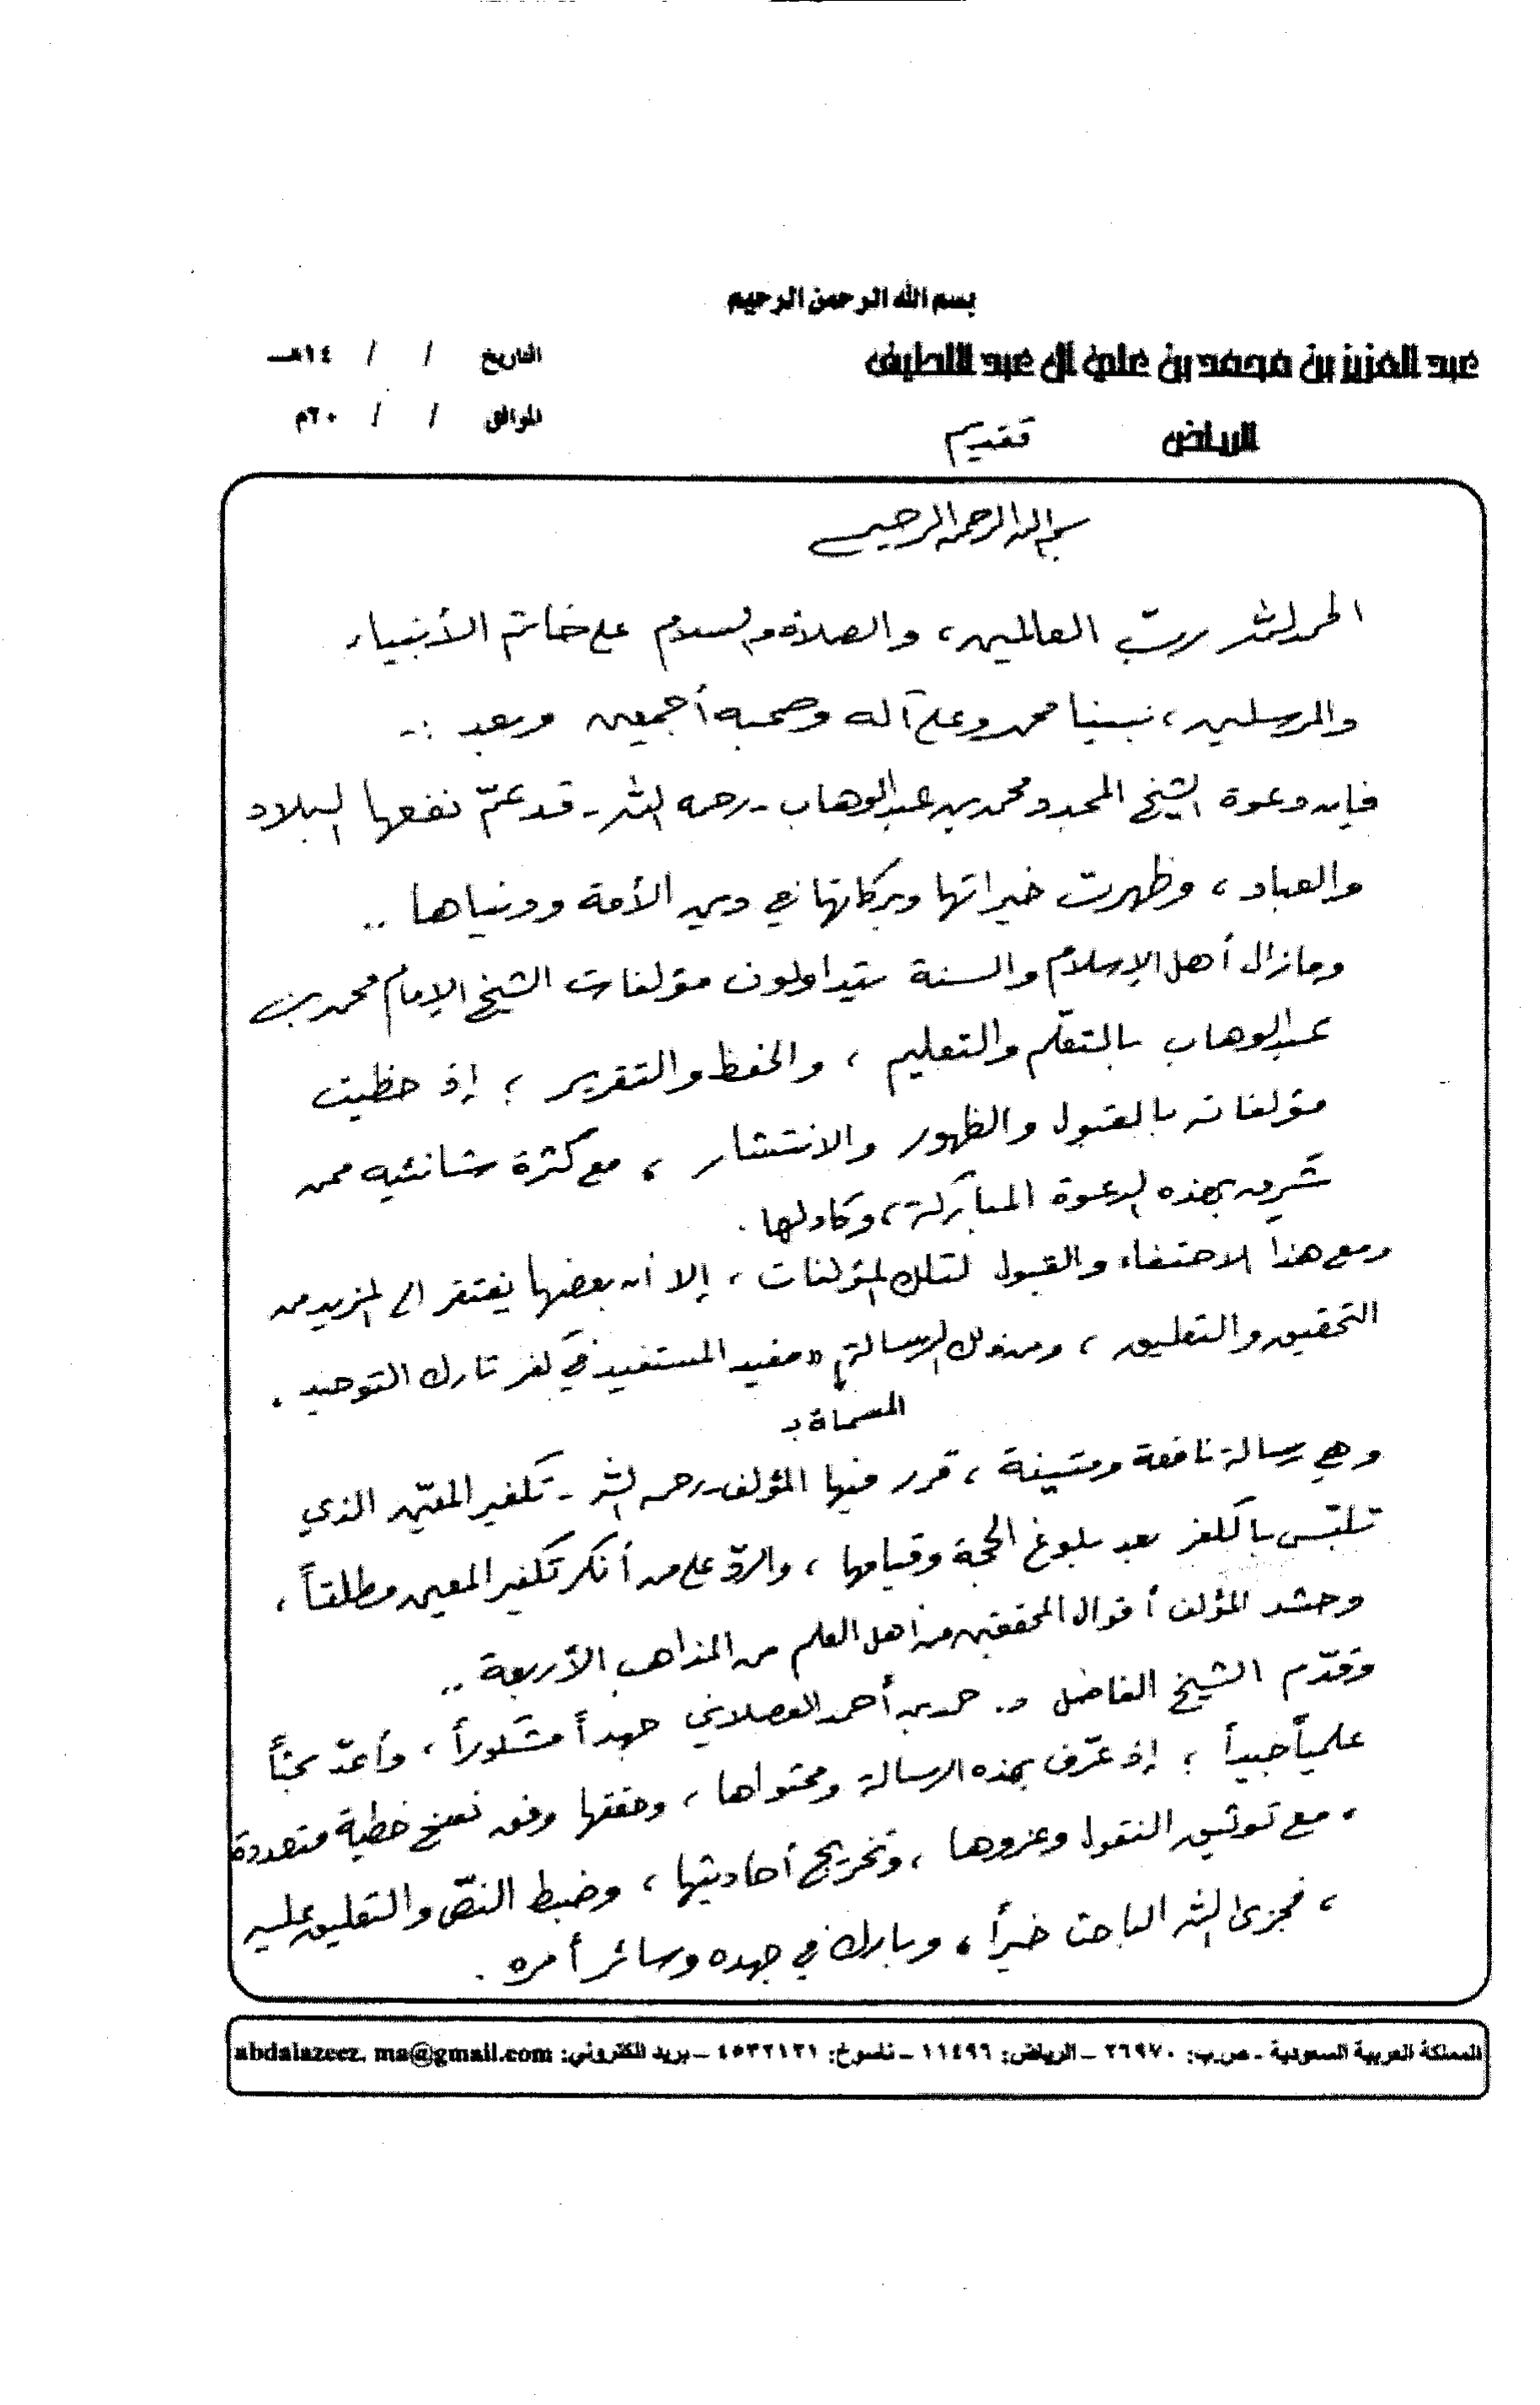 بسم الله الرحمن الرحيم
عبد العزيز بن محمد بن علي آل عبد اللطيف
التاريخ / / ١٤هـ
الرياض
الموافق / / ٢٠م
تقديم
بسم الله الرحمن الرحيم
الحمد لله رب العالمين، والصلاة والسلام على خاتم الأنبياء
والمرسلين، نبينا محمد وعلى آله وصحبه أجمعين وبعد :-
فإن دعوة الشيخ المجدد محمد بن عبدالوهاب - رحمه الله - قد عمّ نفعها البلاد
والعباد، وظهرت خيراتها وبركاتها في دين الأمة ودنياها ..
وما زال أهل الإسلام والسنة يتداولون مؤلفات الشيخ الإمام محمد بن
عبدالوهاب بالتعلّم والتعليم، والحفظ والتقرير؛ إذ حظيت
مؤلفاته بالقبول والظهور والانتشار، مع كثرة شانئيه ممن
شرق بهذه الدعوة المباركة، وكادلها.
ومع هذا الاحتفاء والقبول لتلك المؤلفات، إلا أن بعضها يفتقر إلى المزيد من
التحقيق والتعليق، ومن ذلك الرسالة «مفيد المستفيد في كفر تارك التوحيد.
المسماة بـ
وهي رسالة نافعة ومتينة، قرر فيها المؤلف - رحمه الله - تكفير المعيّن الذي
تلبّس بالكفر بعد بلوغ الحجة وقيامها، والردّ على من أنكر تكفير المعين مطلقاً،
وحشد المؤلف أقوال المحققين من أهل العلم من المذاهب الأربعة ..
وقدّم الشيخ الفاضل د. حمد بن أحمد العصلاني جهداً مشكوراً، وأعدّ بحثاً
علمياً جيداً؛ إذ عرّف بهذه الرسالة ومحتواها، وحققها وفق نسخ خطية متعددة
، مع توثيق النقول وعزوها، وتخريج أحاديثها، وضبط النصّ والتعليق عليه
، فجزى الله الباحث خيراً، وبارك في جهده وسائر أمره.
المملكة العربية السعودية - ص.ب: ٢٦٩٧٠ - الرياض: ١١٤٩٦ - ناسوخ: ٤٥٣٢١٣١ - بريد الكتروني: abdalazeez. ma@gmail.com